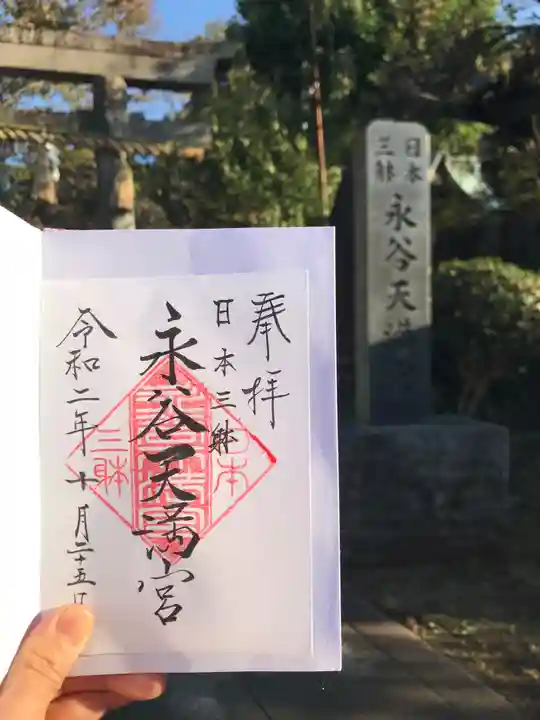 奉拝
日本三躰
永谷天満宮
令和二年十月二十五日
日本
三躰
日本
三躰
永谷天満